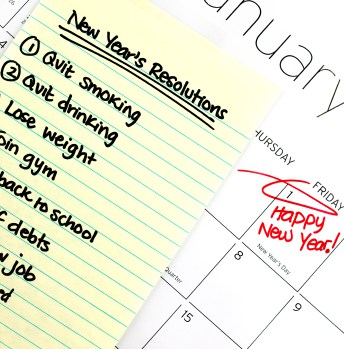 New Year's Resolutions
① Quit smoking
② Quit drinking
Lose weight
gym
back to school
debts
job
4
anuary
HURSDAY
FRIDAY
1
Happy
New Year!
New Year's Day
8
9
15